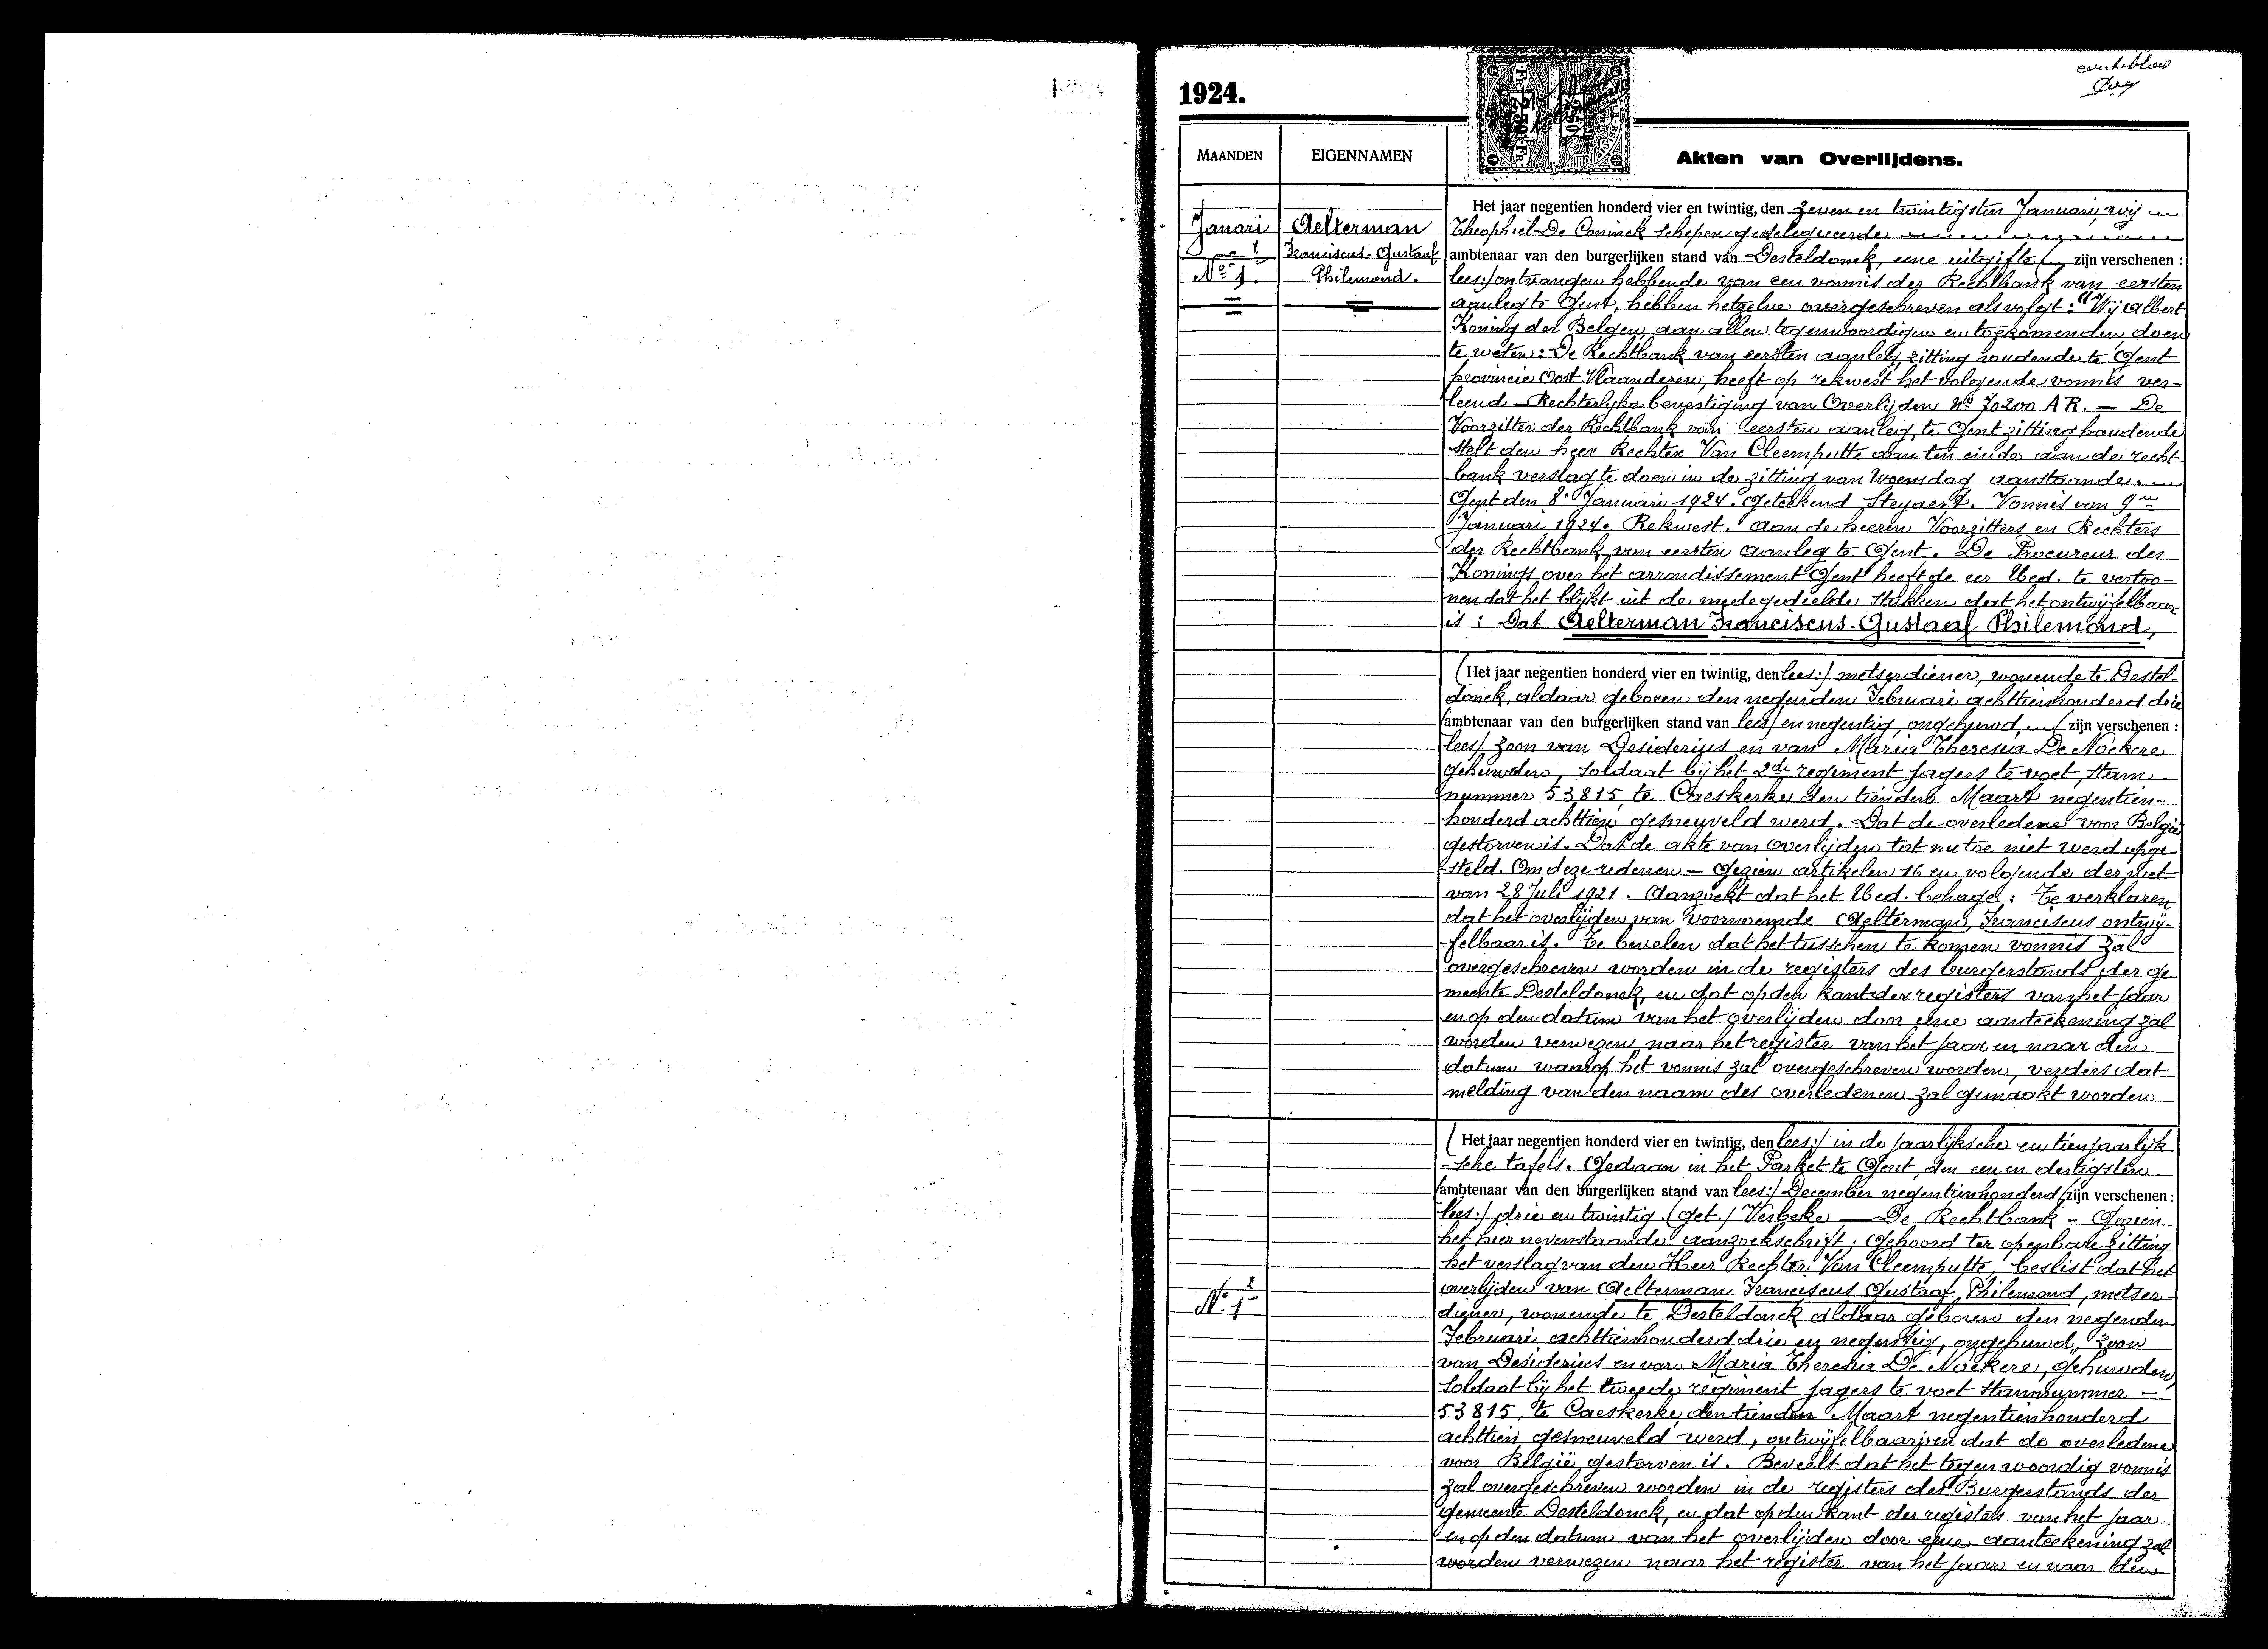 eerste blad
1924.
MAANDEN
EIGENNAMEN
Akten van Overlijdens.
Janari
1
No 1.
Aelterman
Franciscus-Gustaaf
Philemond.
Het jaar negentien honderd vier en twintig, den zeven en twintigsten Januari, wij
Theophiel De Coninck schepen gedelegueerde
ambtenaar van den burgerlijken stand van Desteldonck, eene uitgifte ( zijn verschenen :
lees:/ ontvangen hebbende van een vonnis der Rechtbank van eersten
aanleg te Gent, hebben hetzelve overgeschreven als volgt: "Wij Albert
Koning der Belgen, aan allen tegenwoordigen en toekomenden, doen
te weten: De Rechtbank van eersten aanleg, zitting houdende te Gent
provincie Oost Vlaanderen, heeft op rekwest het volgende vonnis ver-
leend — Rechterlijke bevestiging van Overlijden No 70200 AR. — De
Voorzitter der Rechtbank van eersten aanleg, te Gent zitting houdende
stelt den heer Rechter Van Cleemputte aan ten einde aan de recht-
bank verslag te doen in de zitting van Woensdag aanstaande.
Gent den 8. Januari 1924. Geteekend Steyaert. Vonnis van 9en
Januari 1924. Rekwest, aan de heeren Voorzitters en Rechters
der Rechtbank van eersten aanleg te Gent. De Procureur des
Konings over het arrondissement Gent heeft de eer Ued. te vertoo-
nen dat het blijkt uit de medegedeelde stukken dat het ontwijfelbaar
is : Dat Aelterman Franciscus-Gustaaf Philemond,
(Het jaar negentien honderd vier en twintig, den lees:/ metserdiener, wonende te Destel-
donck, aldaar geboren den negenden Februari achttienhonderd drie
(ambtenaar van den burgerlijken stand van lees/ en negentig, ongehuwd, ( zijn verschenen :
lees/ zoon van Desiderius en van Maria Theresia De Nockere
gehuwden, soldaat bij het 2de regiment jagers te voet, stam-
nummer 53815, te Caeskerke den tienden Maart negentien-
honderd achttien gesneuveld werd. Dat de overledene voor België
gestorven is. Dat de akte van overlijden tot nu toe niet werd opge-
steld. Om deze redenen — Gezien artikelen 16 en volgende der wet
van 28 Juli 1921. Aanzoekt dat het Ued. behage: Te verklaren
dat het overlijden van voornoemde Aelterman, Franciscus ontwij-
felbaar is. Te bevelen dat het tusschen te komen vonnis zal
overgeschreven worden in de registers des burgerstands der ge-
meente Desteldonck, en dat op den kant der registers van het jaar
en op den datum van het overlijden door eene aanteekening zal
worden verwezen naar het register van het jaar en naar den
datum waarop het vonnis zal overgeschreven worden, verders dat
melding van den naam des overledenen zal gemaakt worden
(Het jaar negentien honderd vier en twintig, den lees:/ in de jaarlijksche en tienjaarlijk
-sche tafels. Gedaan in het Parket te Gent, den een en dertigsten
(ambtenaar van den burgerlijken stand van lees:/ December negentienhonderd (zijn verschenen :
lees:/ drie en twintig. (get./ Verbeke — De Rechtbank - Gezien
het hiernevenstaande aanzoekschrift; Gehoord ter openbare zitting
het verslag van den Heer Rechter Van Cleemputte, beslist dat het
overlijden van Aelterman Franciscus Gustaaf Philemond, metser-
2
No 1
diener, wonende te Desteldonck aldaar geboren den negenden
Februari achttienhonderd drie en negentig, ongehuwd, zoon
van Desiderius en van Maria Theresia De Nockere, gehuwden,
soldaat bij het tweede regiment jagers te voet stamnummer —
53815, te Caeskerke den tienden Maart negentienhonderd
achttien gesneuveld werd, ontwijfelbaar is en dat de overledene
voor België gestorven is. Beveelt dat het tegenwoordig vonnis
zal overgeschreven worden in de registers des Burgerstands der
gemeente Desteldonck, en dat op den kant der registers van het jaar
en op den datum van het overlijden door eene aanteekening zal
worden verwezen naar het register van het jaar en naar den